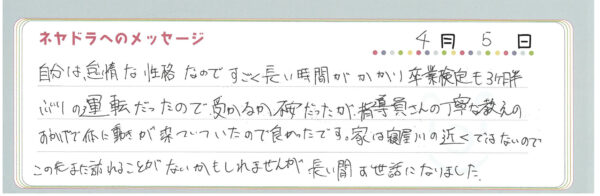 ネヤドラへのメッセージ
4月 5日
自分は怠惰な性格なのですごく長い時間がかかり卒業検定も3ヶ月半
ぶりの運転だったので受かるか不安だったが、指導員さんの丁寧な教えの
おかげで体に動きが染みついていたので良かったです。家は寝屋川の近くではないので
このたまた訪れることがないかもしれませんが長い間お世話になりました。